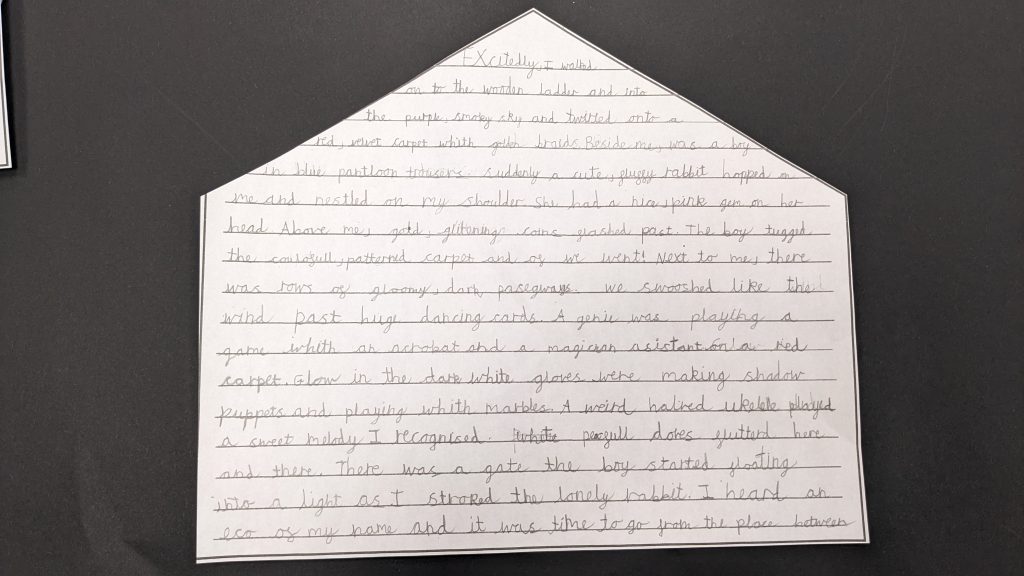 Excitedly, I walked
on to the wooden ladder and into
the purple, smokey sky and twirled onto a
red, velvet carpet whith golden braids. Beside me, was a boy
in blue pantloon trousers. Suddenly a cute, gluggy rabbit hopped on
me and nestled on my shoulder. She had a nice, pink gem on her
head Above me, gold, glitening coins glashed past. The boy tugged
the coulofull, patterned carpet and of we went! Next to me, there
was rows of gloomy, dark pasegways. We swooshed like the
wind past huge dancing cards. A genie was playing a
game whith an acrobat and a magician asistant on a red
carpet. Glow in the dark white gloves were making shadow
puppets and playing whith marbles. A weird haired ukelele played
a sweet melody I recognised. white doves glutterd here
and there. There was a gate the boy started gloating
into a light as I stroked the lonely rabbit. I heard an
eco of my name and it was time to go from the place between